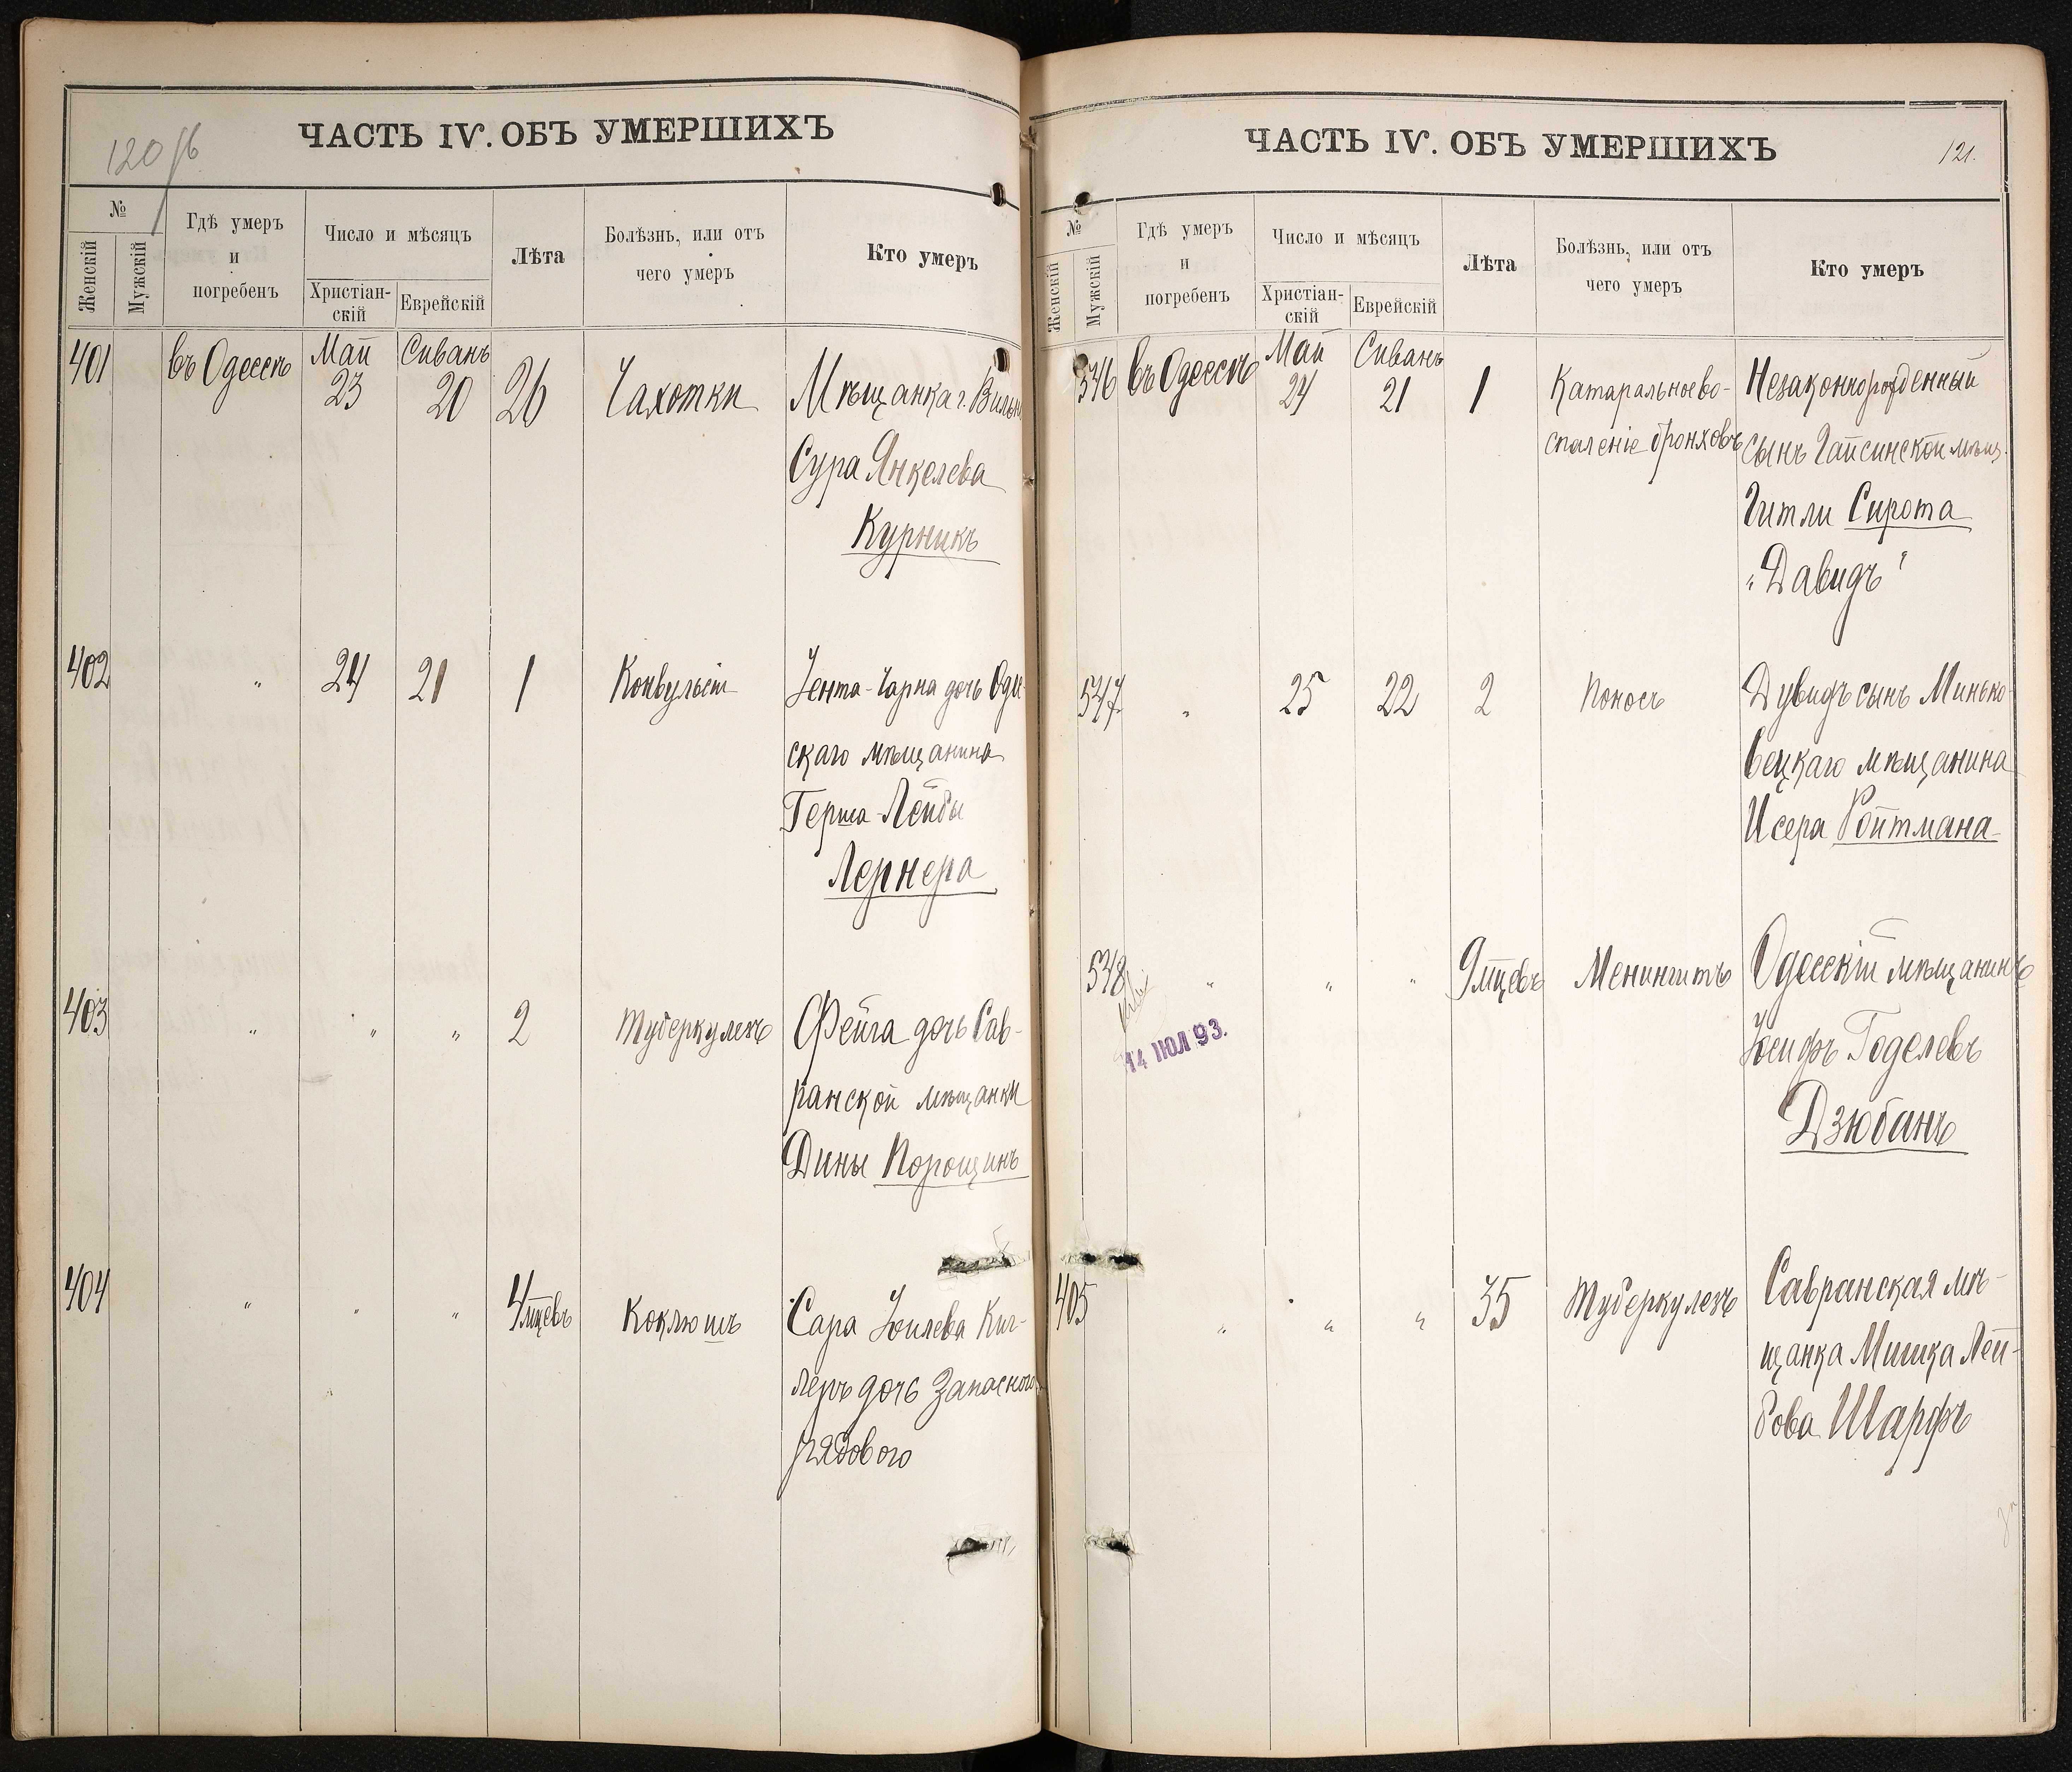 120 об
ЧАСТЬ IV. ОБЪ УМЕРШИХЪ
№
Женскій
Мужскій
Гдѣ умеръ
и
погребенъ
Число и мѣсяцъ
Христіан-
скій
Еврейскій
Лѣта
Болѣзнь, или отъ
чего умеръ
Кто умеръ
401 въ Одессѣ Май 23 Сиванъ 20 26 Чахотки Мѣщанка г. Вильны
Сура Янкелева
Курникъ
402 " 24 21 1 Конвульсіи Іента-Чарна дочь Одес-
скаго мѣщанина
Герша-Лейбы
Лернера
403 " " " 2 Туберкулезъ Фейга дочь Сав-
ранской мѣщанки
Дины Порощинъ
404 " " " 4 мцевъ Коклюшъ Сара Іоилева Киг-
леръ дочь запасного
рядового
ЧАСТЬ IV. ОБЪ УМЕРШИХЪ
121.
№
Женскій
Мужскій
Гдѣ умеръ
и
погребенъ
Число и мѣсяцъ
Христіан-
скій
Еврейскій
Лѣта
Болѣзнь, или отъ
чего умеръ
Кто умеръ
546 въ Одессѣ Май 24 Сиванъ 21 1 Катаральное во- Незаконнорожденный
спаленіе бронховъ сынъ Гайсинской мѣщ.
Гитли Сирота
"Давидъ"
547 " 25 22 2 Поносъ Дувидъ сынъ Минько-
вецкаго мѣщанина
Исера Ройтмана
548 " " " 9 мцевъ Менингитъ Одесскій мѣщанинъ
Іосифъ Годелевъ
Дзюбанъ
14 ІЮЛ 93.
405 " " " 35 Туберкулезъ Савранская мѣ-
щанка Мишка Лей-
бова Шарфъ